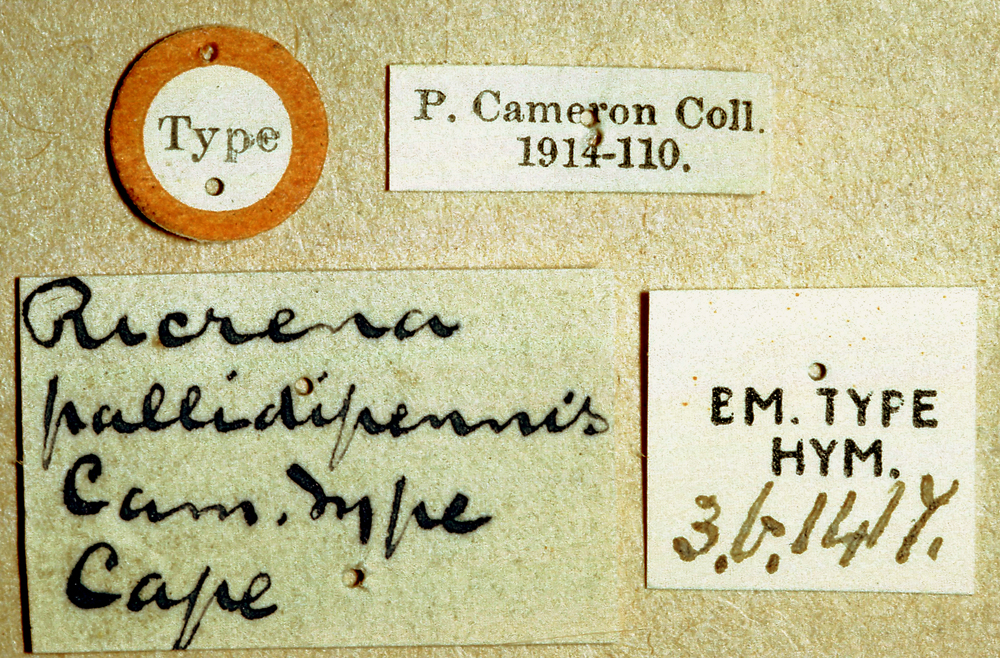 Type
P. Cameron Coll.
1914-110.
Ricrena
pallidipennis
Cam. Type
Cape
BM. TYPE
HYM.